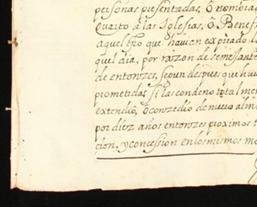 personas presentadas, ô nombra
quarto â las Iglesias, ô Benef
aquel año que hauian expirado l
quel dia, por razon de semejante
de entonzes, segun despues que hui
prometidas si las condeno totalmen
extendio, ô concedio de nuevo alm
por diez años entonzes proximos
cion, y concession en los mismos m